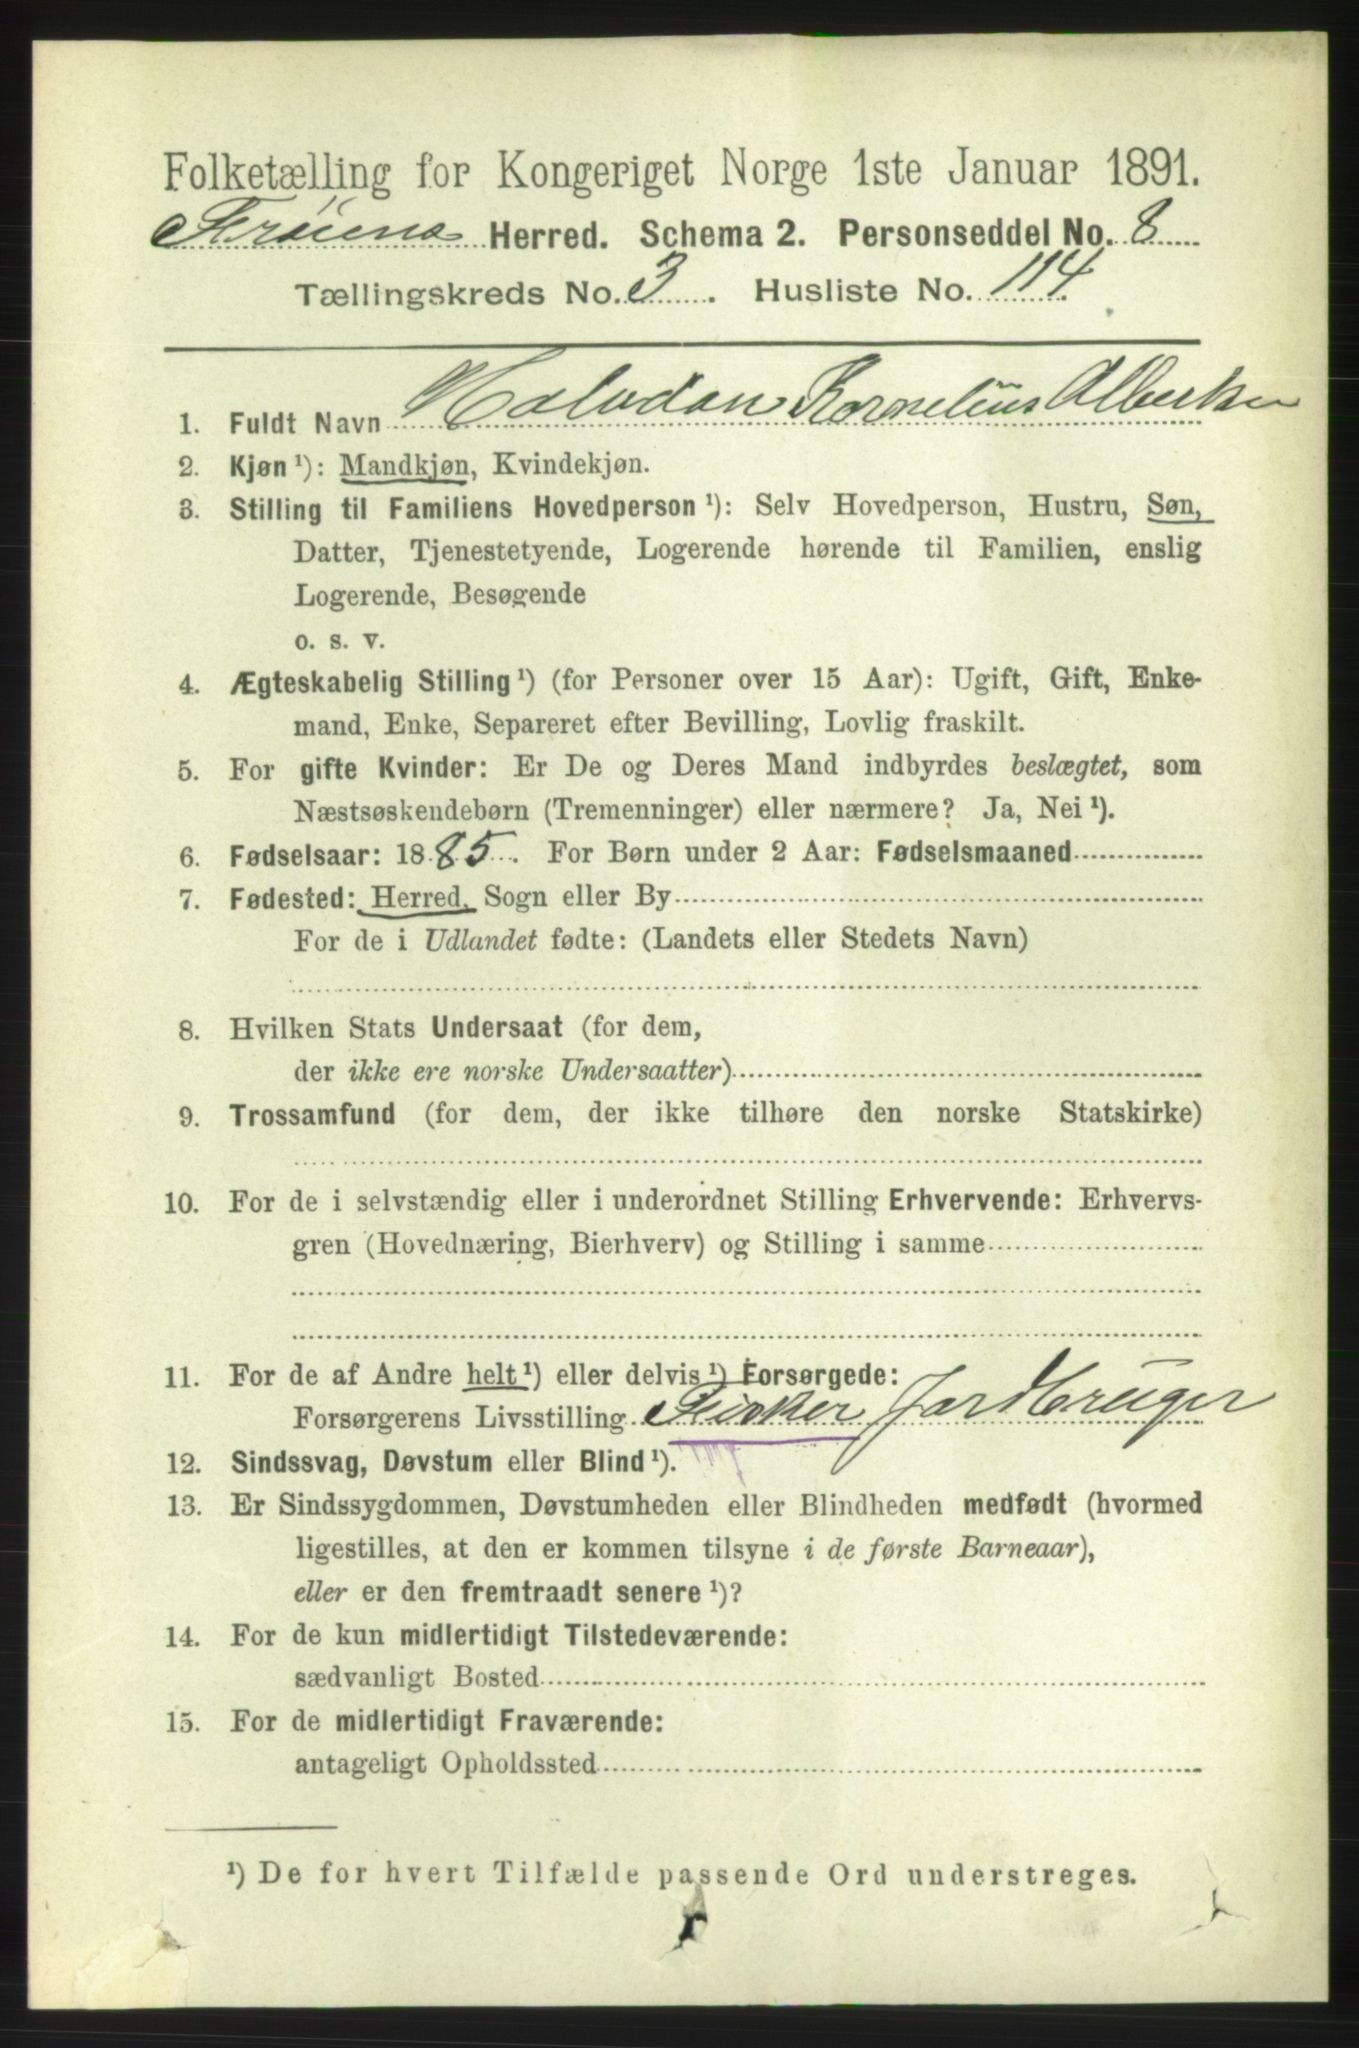 Folketælling for Kongeriget Norge 1ste Januar 1891.
Frøiens Herred. Schema 2. Personseddel No. 8
Tællingskreds No. 3. Husliste No. 114.
1. Fuldt Navn Halvdan Kornelius Albertsen
2. Kjøn ¹): Mandkjøn, Kvindekjøn.
3. Stilling til Familiens Hovedperson ¹): Selv Hovedperson, Hustru, Søn,
Datter, Tjenestetyende, Logerende hørende til Familien, enslig
Logerende, Besøgende
o. s. v.
4. Ægteskabelig Stilling ¹) (for Personer over 15 Aar): Ugift, Gift, Enke-
mand, Enke, Separeret efter Bevilling, Lovlig fraskilt.
5. For gifte Kvinder: Er De og Deres Mand indbyrdes beslægtet, som
Næstsøskendebørn (Tremenninger) eller nærmere? Ja, Nei ¹).
6. Fødselsaar: 1885. For Børn under 2 Aar: Fødselsmaaned
7. Fødested: Herred, Sogn eller By
For de i Udlandet fødte: (Landets eller Stedets Navn)
8. Hvilken Stats Undersaat (for dem,
der ikke ere norske Undersaatter)
9. Trossamfund (for dem, der ikke tilhøre den norske Statskirke)
10. For de i selvstændig eller i underordnet Stilling Erhvervende: Erhvervs-
gren (Hovednæring, Bierhverv) og Stilling i samme
11. For de af Andre helt ¹) eller delvis ¹) Forsørgede:
Forsørgerens Livsstilling Fisker Jordbruger
12. Sindssvag, Døvstum eller Blind ¹).
13. Er Sindssygdommen, Døvstumheden eller Blindheden medfødt (hvormed
ligestilles, at den er kommen tilsyne i de første Barneaar),
eller er den fremtraadt senere ¹)?
14. For de kun midlertidigt Tilstedeværende:
sædvanligt Bosted
15. For de midlertidigt Fraværende:
antageligt Opholdssted
¹) De for hvert Tilfælde passende Ord understreges.